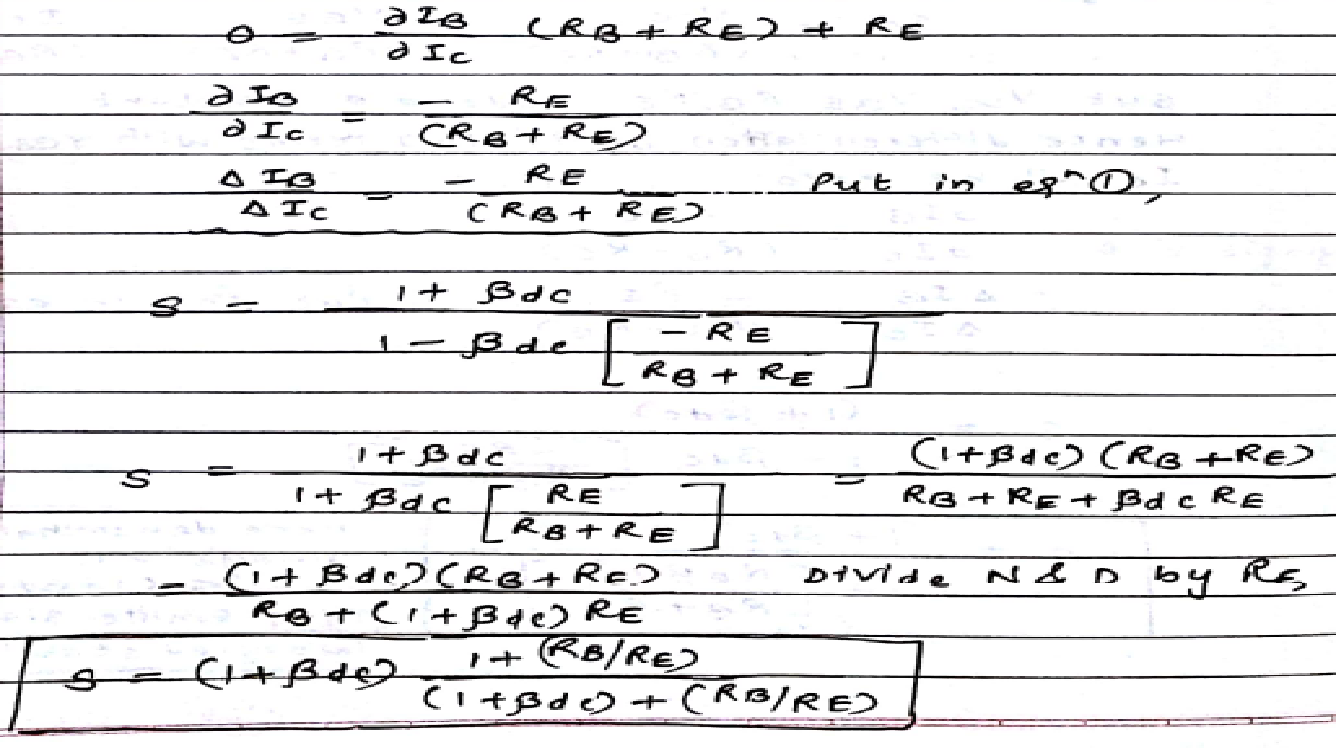 0 = ∂IB/∂IC (RB + RE) + RE
∂IB/∂IC = - RE/(RB + RE)
ΔIB/ΔIC = - RE/(RB + RE) Put in eqⁿ ①,
S = 1 + βdc / 1 - βdc [ - RE / RB + RE ]
S = 1 + βdc / 1 + βdc [ RE / RB + RE ] = (1+βdc) (RB + RE) / RB + RE + βdc RE
= (1 + βdc) (RB + RE) / RB + (1 + βdc) RE Divide N & D by RE,
S = (1 + βdc) 1 + (RB/RE) / (1 + βdc) + (RB/RE)